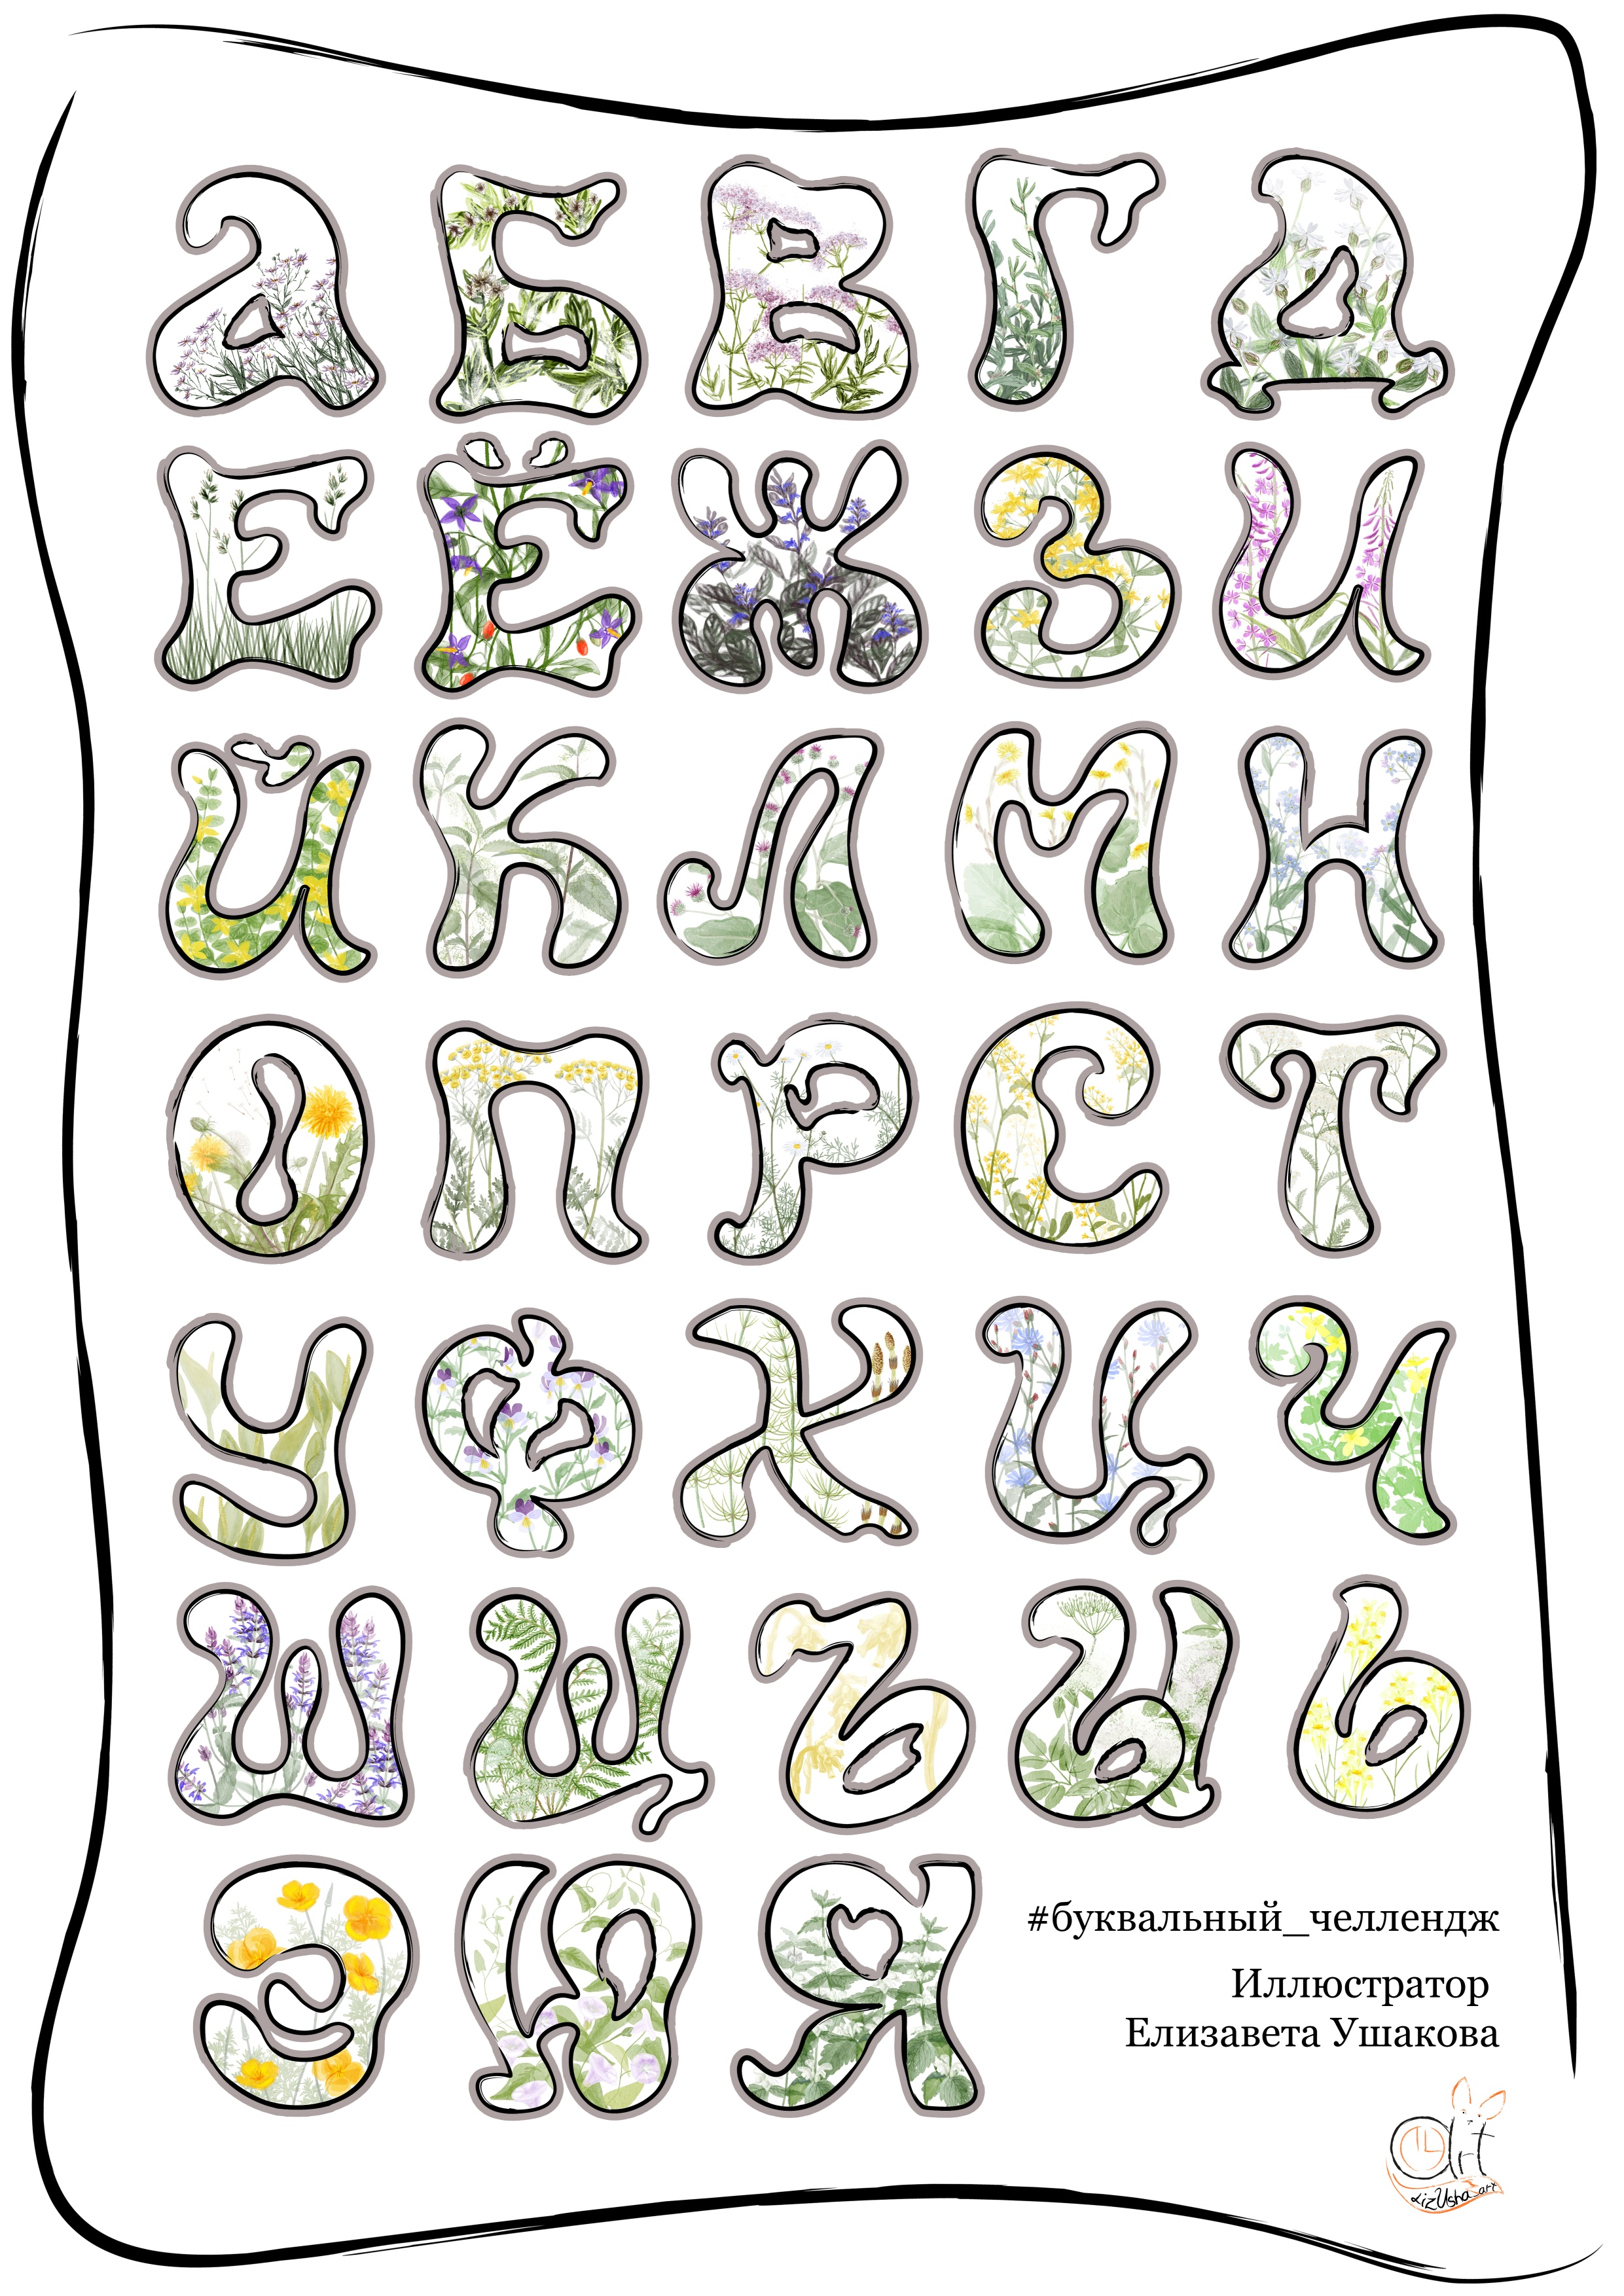 а Б В Г Д
Е Ё Ж З И
Й К Л М Н
О П Р С Т
У Ф Х Ц Ч
Ш Щ Ъ Ы Ь
Э Ю Я
#буквальный_челлендж
Иллюстратор
Елизавета Ушакова
art
LizUsha_art